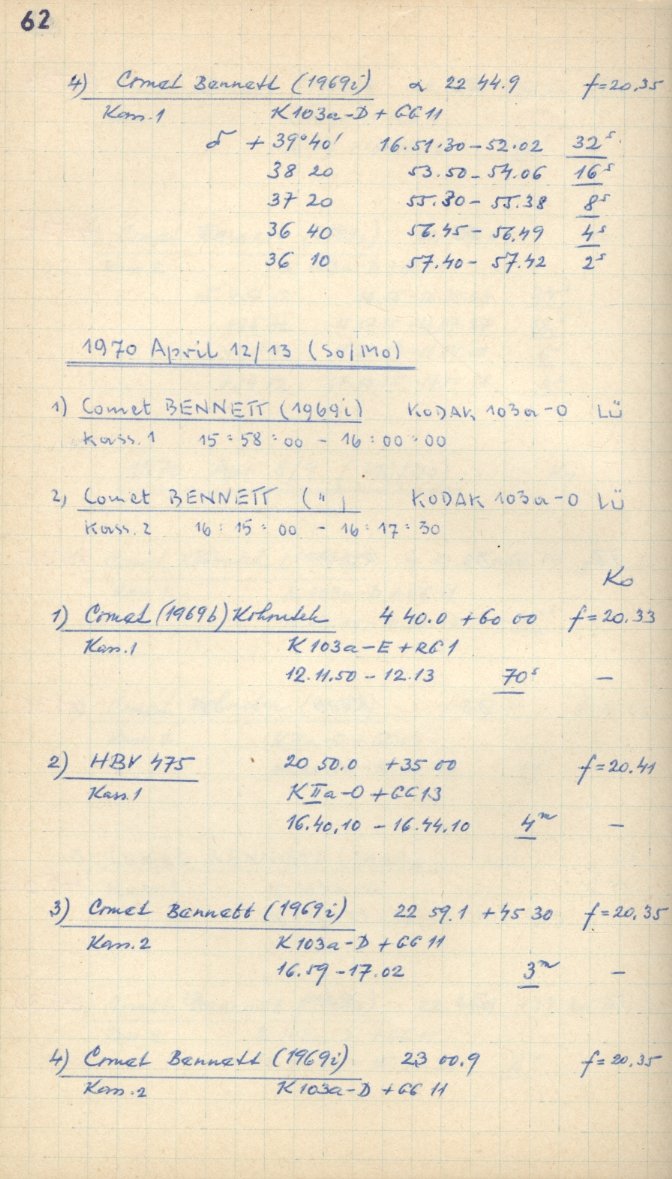 62
4) Comet Bennett (1969i) α 22 44.9 f=20.35
Kass.1 K103a-D + GG11
δ + 39°40' 16.51.30 - 52.02 32ˢ
38 20 53.50 - 54.06 16ˢ
37 20 55.30 - 55.38 8ˢ
36 40 56.45 - 56.49 4ˢ
36 10 57.40 - 57.42 2ˢ
1970 April 12/13 (So/Mo)
1) Comet BENNETT (1969i) KODAK 103a-O LÜ
Kass. 1 15:58:00 - 16:00:00
2) Comet BENNETT ( " ) KODAK 103a-O LÜ
Kass. 2 16:15:00 - 16:17:30
Ko
1) Comet (1969b) Kohoutek 4 40.0 +60 00 f=20.33
Kass.1 K103a-E + RG1
12.11.50 - 12.13 70ˢ —
2) HBV 475 20 50.0 +35 00 f=20.41
Kass.1 KIIa-O + GG13
16.40.10 - 16.44.10 4ᵐ —
3) Comet Bennett (1969i) 22 59.1 +45 30 f=20.35
Kass.2 K103a-D + GG11
16.59 - 17.02 3ᵐ —
4) Comet Bennett (1969i) 23 00.9 f=20.35
Kass.2 K103a-D + GG11